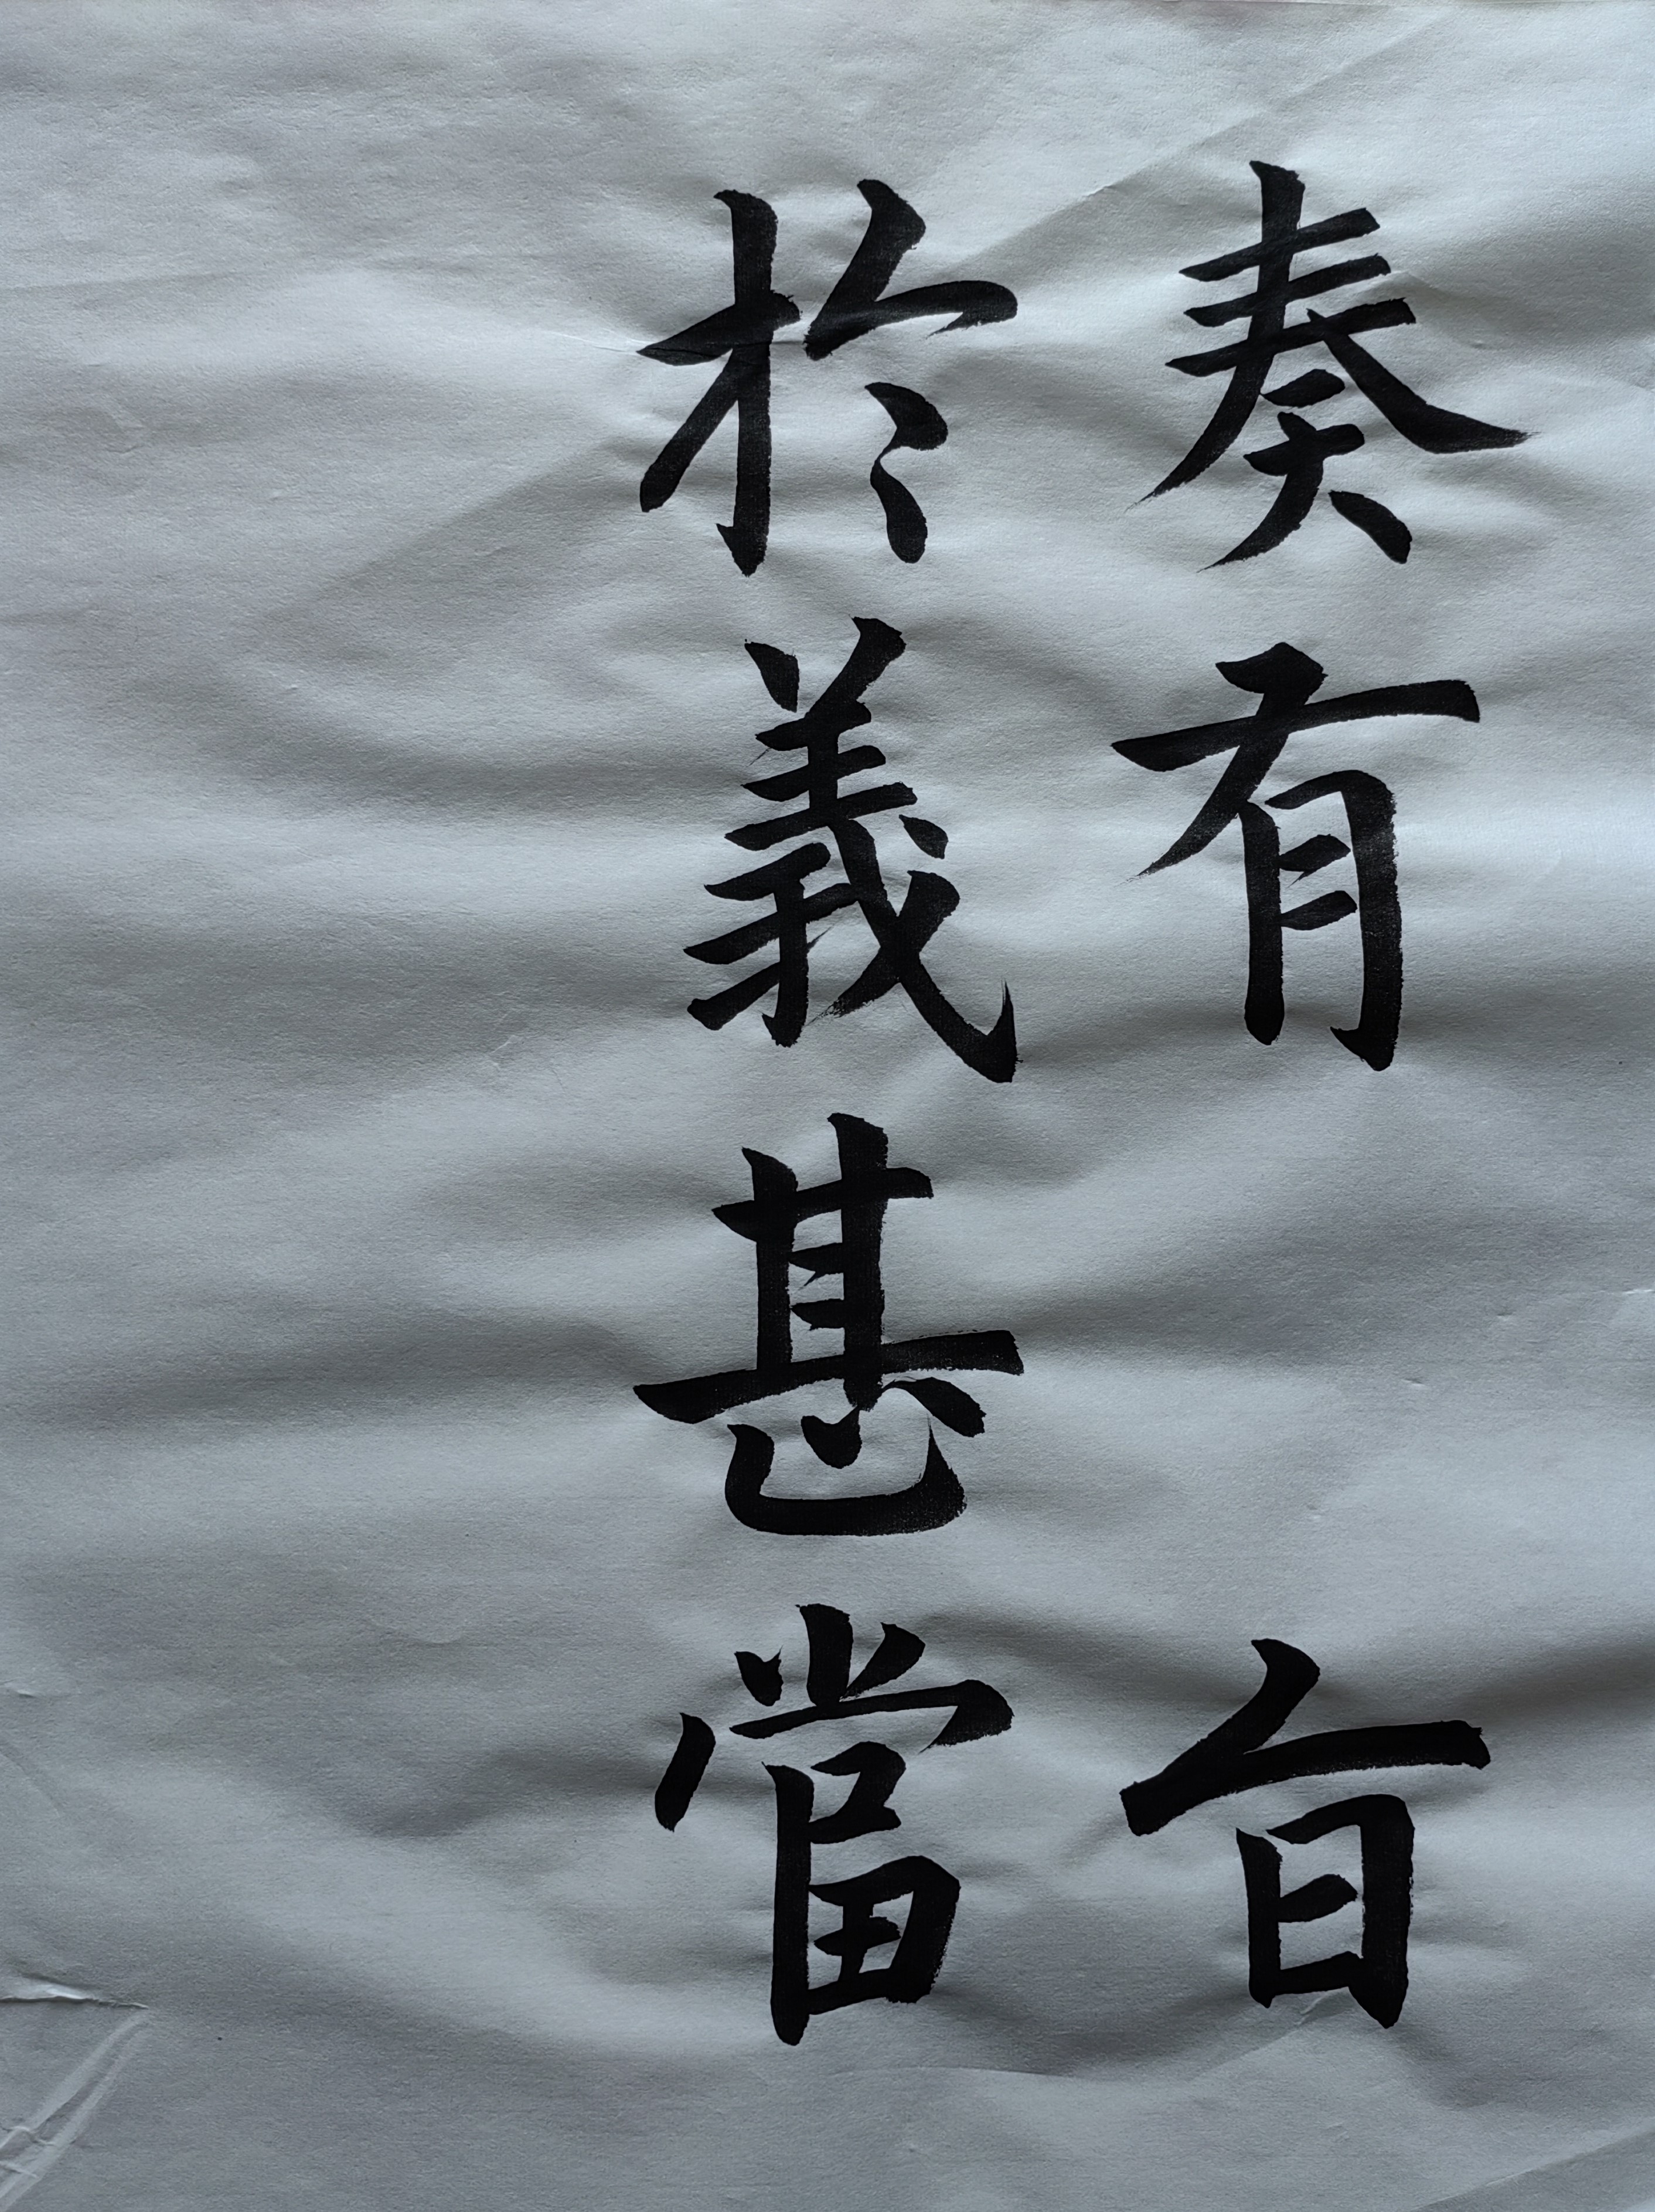 奏有 旨
於義甚當